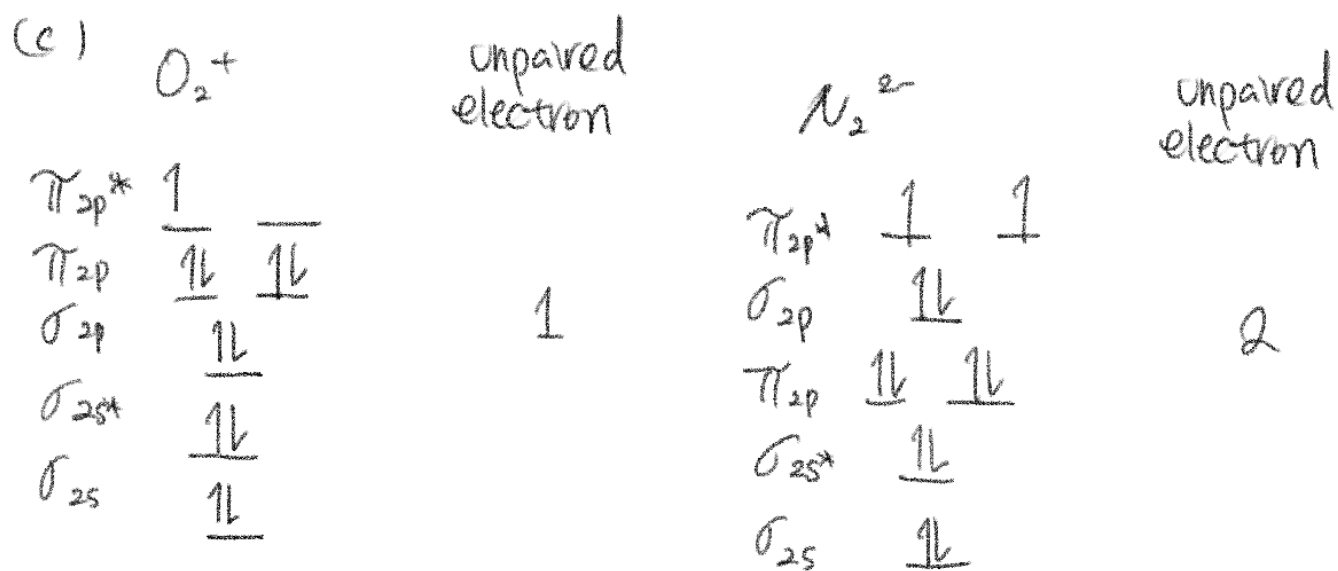 (c)
O₂⁺ unpaired electron
π₂p* 1
π₂p 1⇂ 1⇂
σ₂p 1⇂
σ₂s* 1⇂
σ₂s 1⇂
1
N₂²⁻ unpaired electron
π₂p* 1 1
σ₂p 1⇂
π₂p 1⇂ 1⇂
σ₂s* 1⇂
σ₂s 1⇂
2